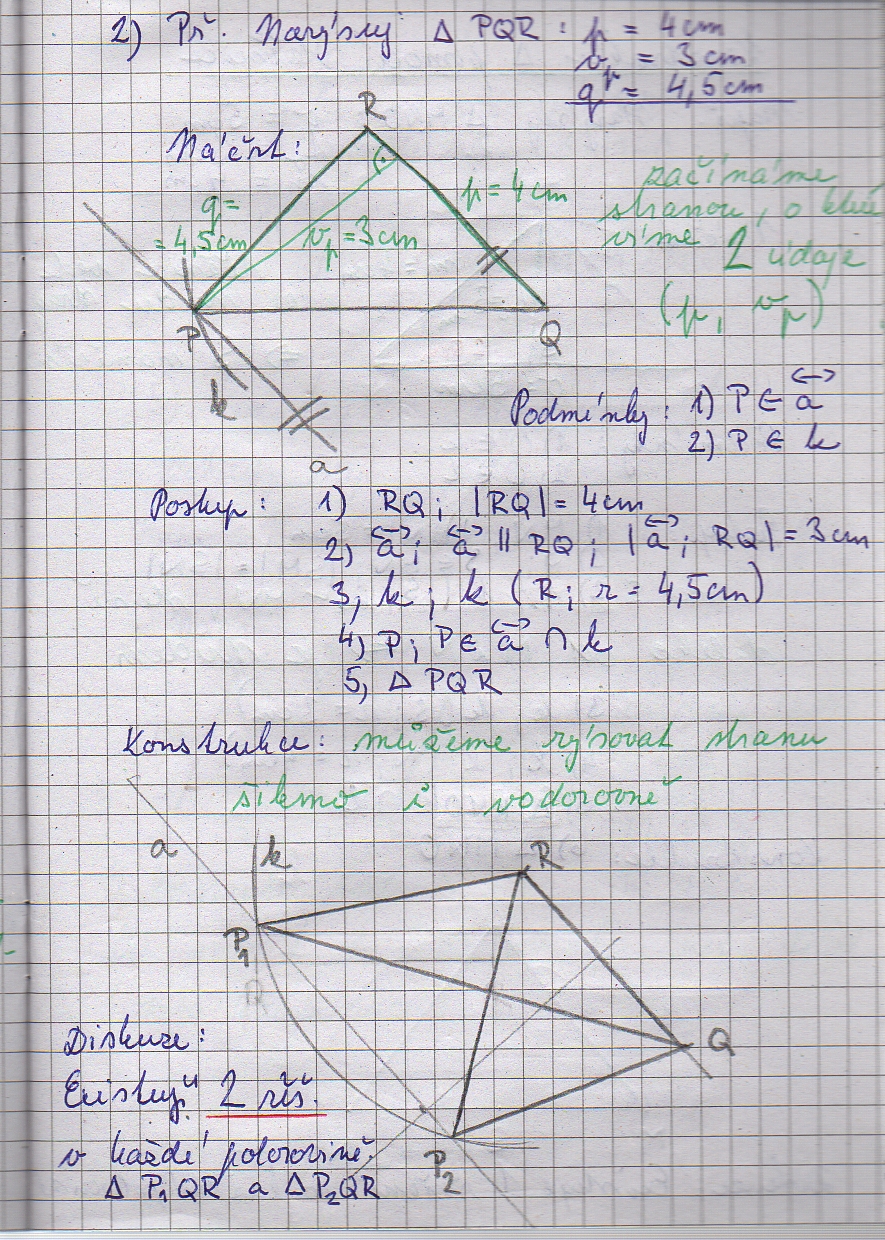 2) Př. Narýsuj △ PQR : p = 4 cm
vₚ = 3 cm
q = 4,5 cm
Náčrt:
R
q =
= 4,5 cm
vₚ = 3 cm
p = 4 cm
P
Q
k
a
začínáme
stranou, o které
víme 2 údaje
(p, vₚ)
Podmínky: 1) P ∈ ↔a
2) P ∈ k
Postup: 1) RQ; |RQ| = 4 cm
2) ↔a; ↔a || RQ; |↔a; RQ| = 3 cm
3, k; k (R; r = 4,5 cm)
4) P; P ∈ ↔a ∩ k
5, △ PQR
Konstrukce: můžeme rýsovat stranu
šikmo i vodorovně
a
k
R
P₁
Q
P₂
Diskuze:
Existují 2 řeš.
v každé polorovině.
△ P₁QR a △P₂QR